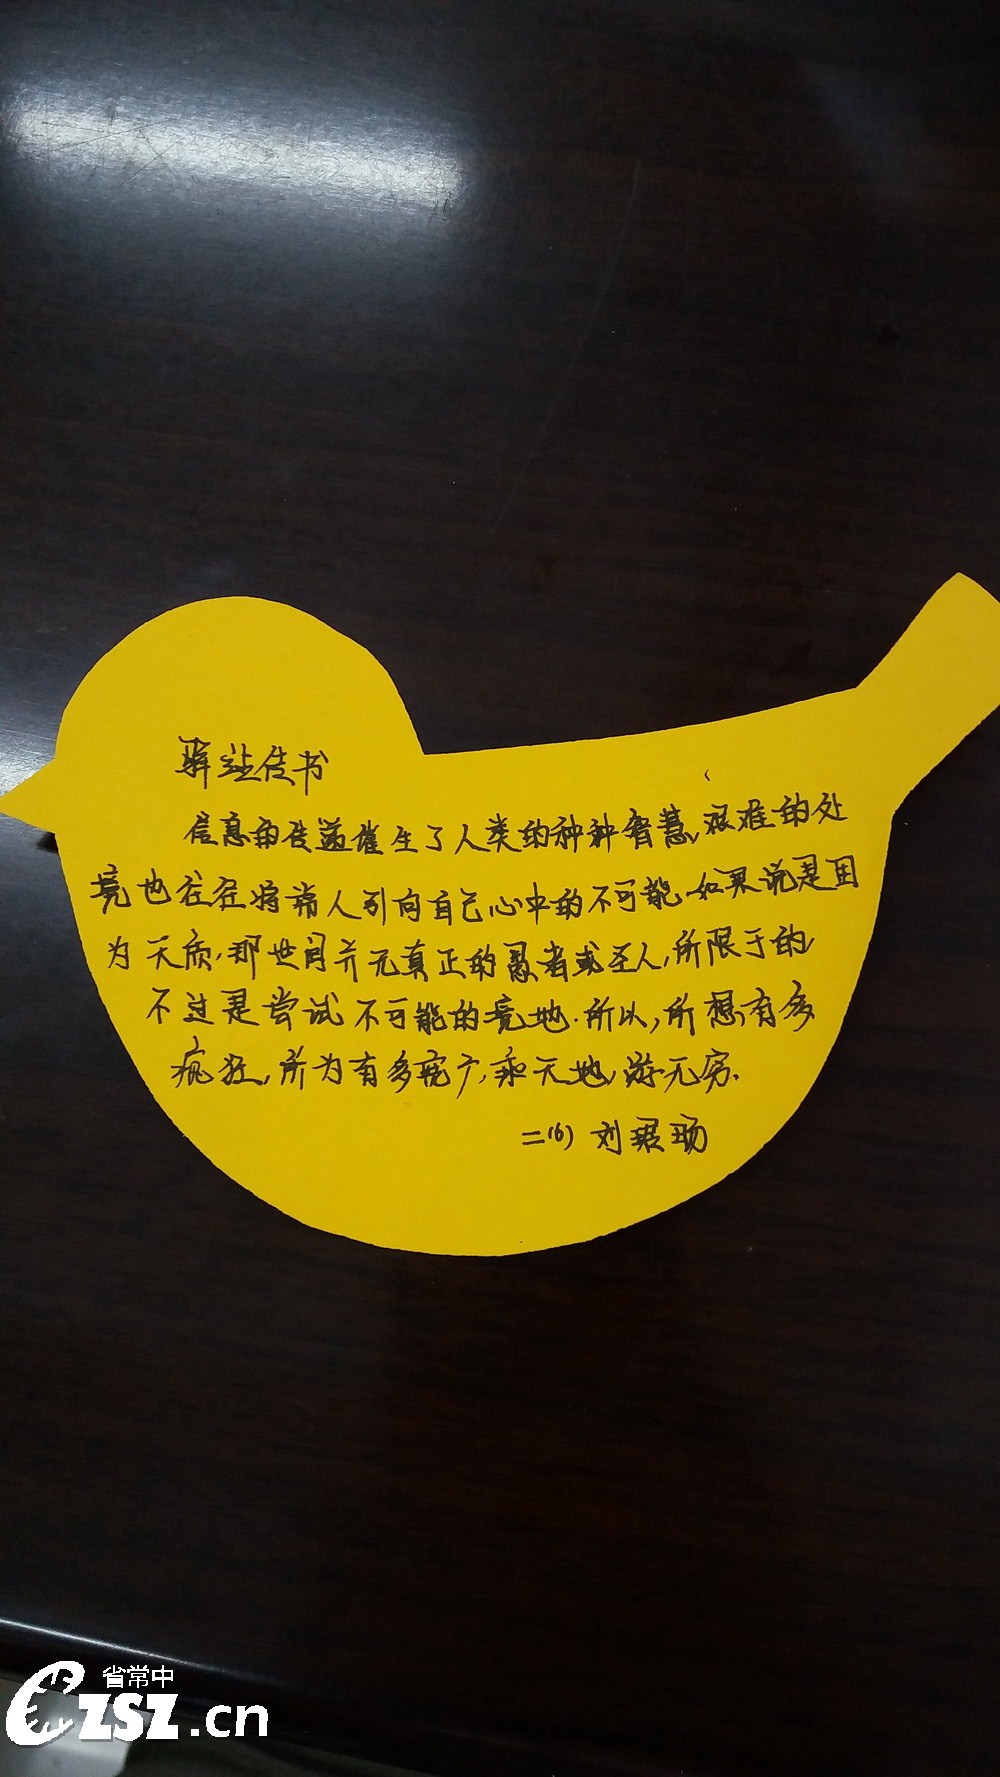 驿站传书
信息的传递催生了人类的种种智慧,艰难的处
境也往往将常人引向自己心中的不可能.如果说是因
为天质,那世间并无真正的愚者或圣人,所限于的,
不过是尝试不可能的境地.所以,所想有多
疯狂,所为有多宽广,乘天地,游无穷.
二(6) 刘珺旸
省常中
CZSZ.cn